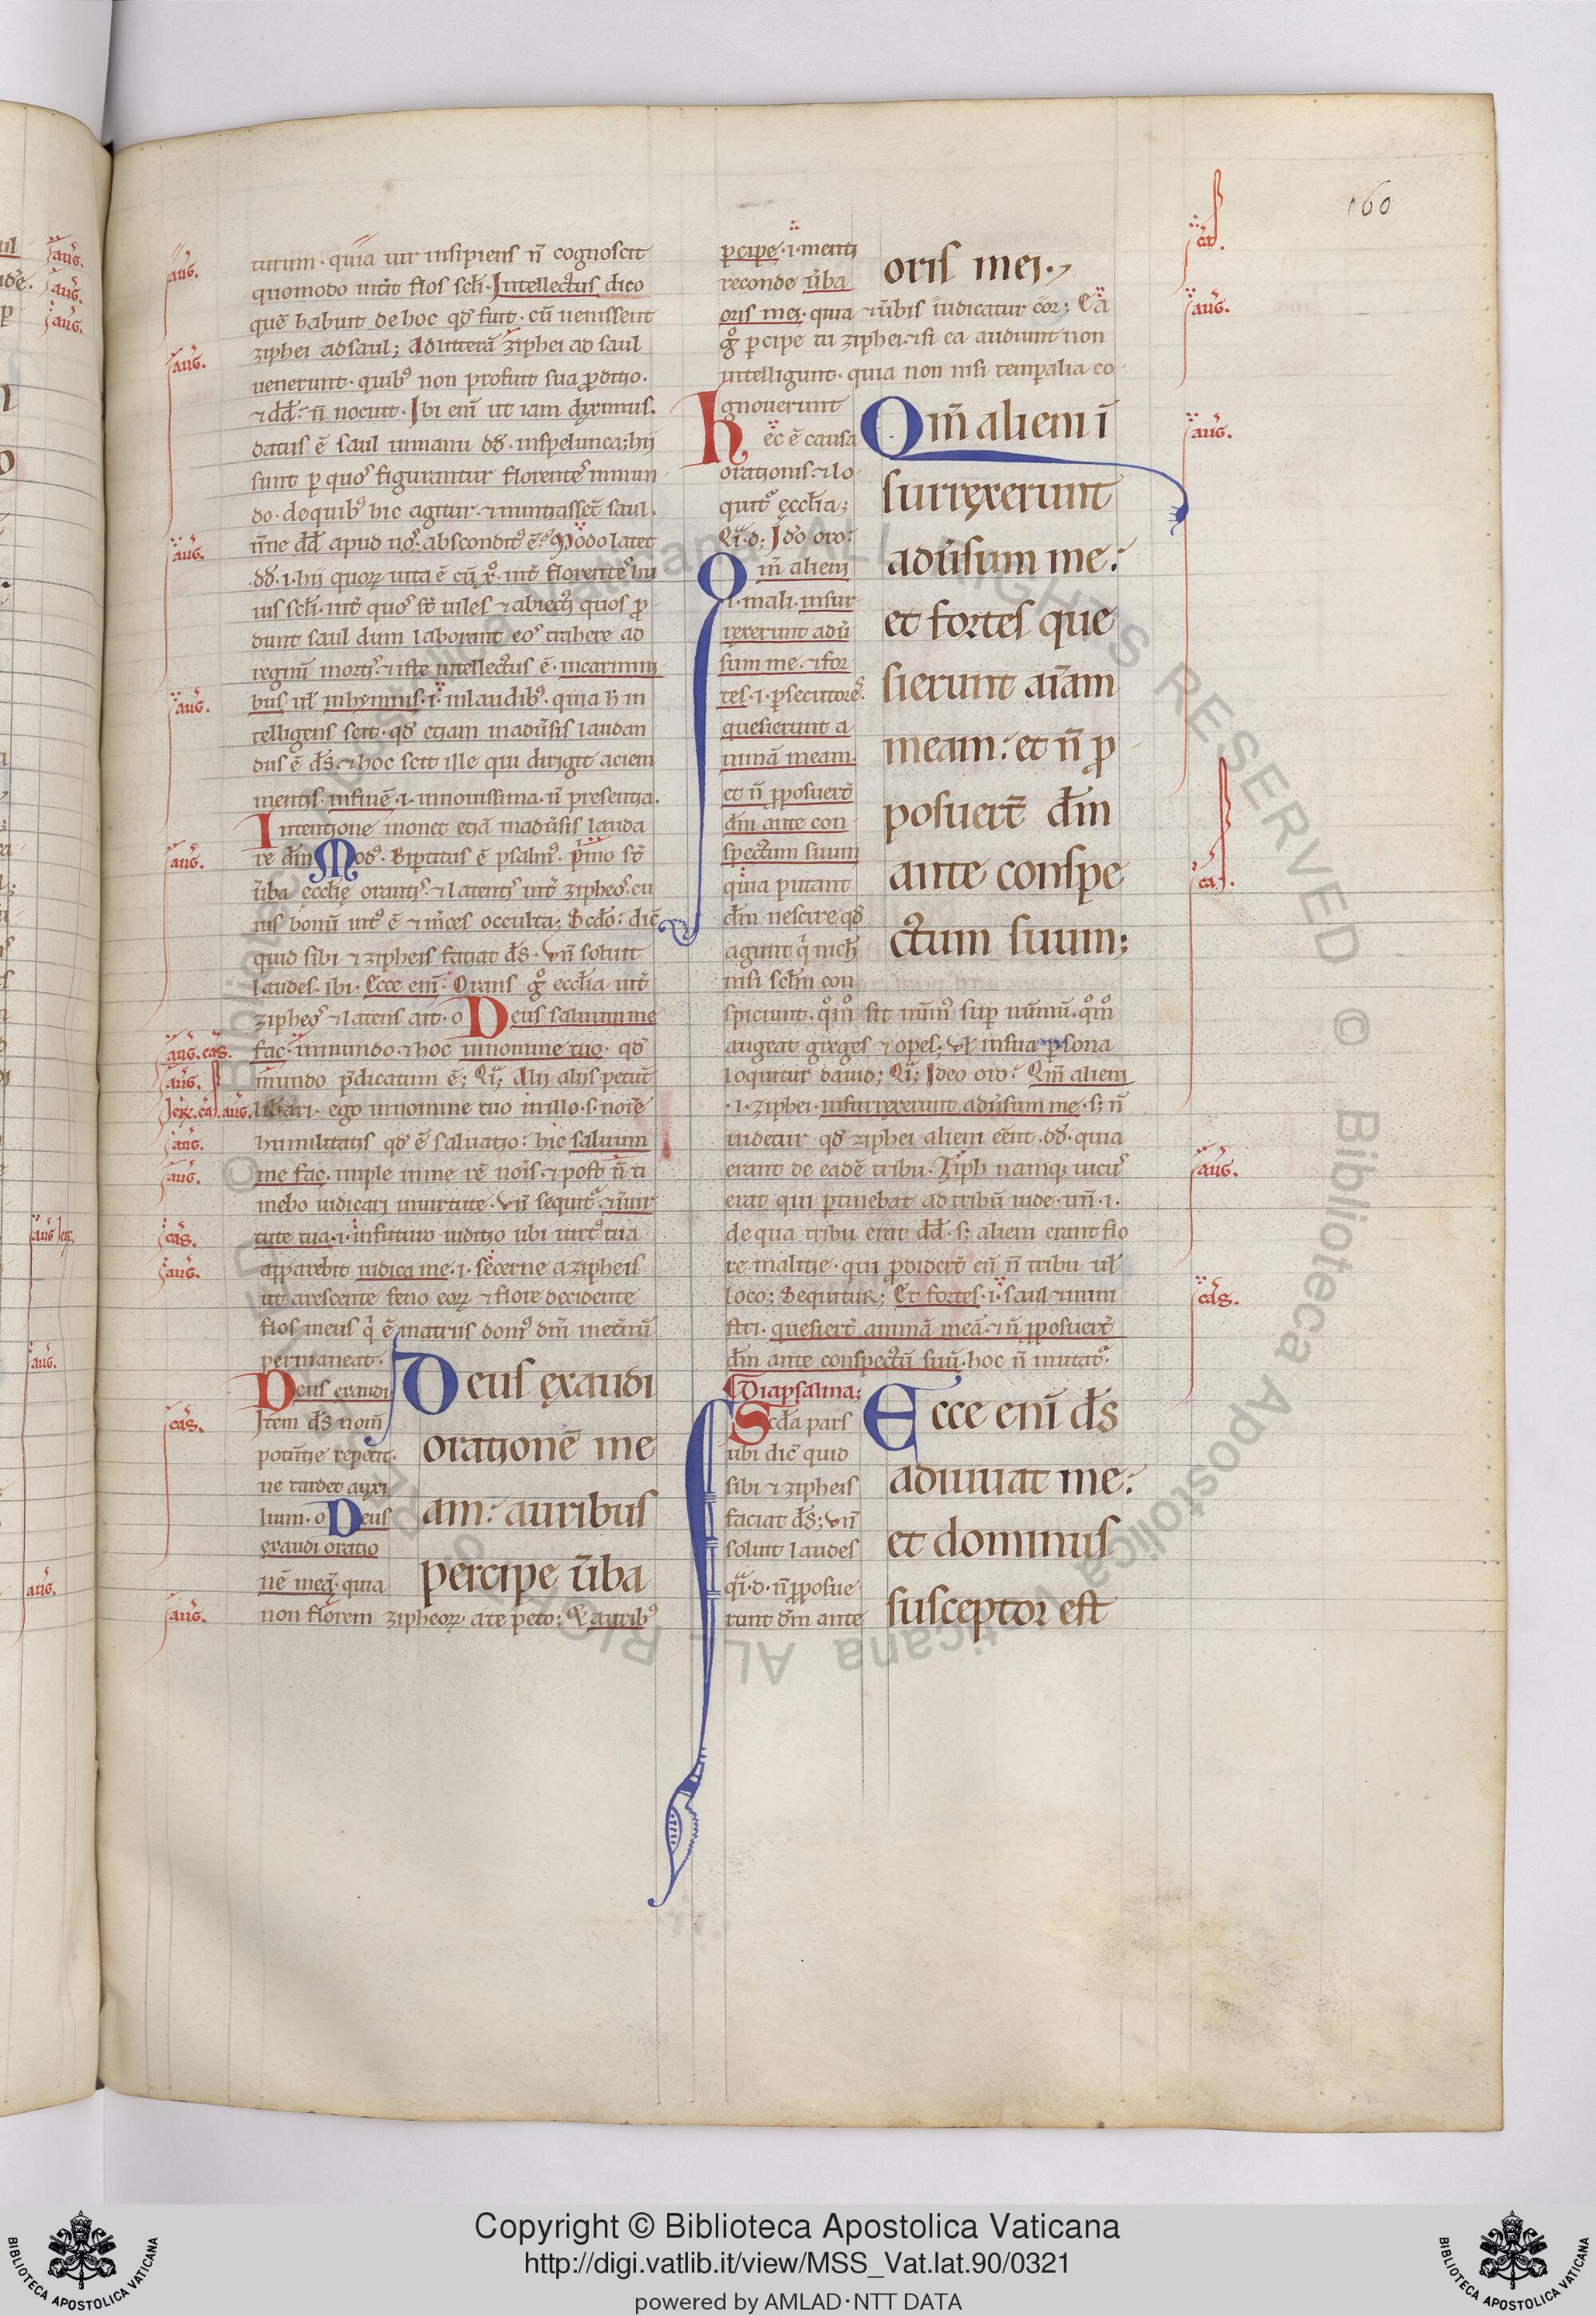 160
tutum· quia uir insipiens n̄ cognoscit
quomodo int̄it flos sc̄li· Intellectus dico
quē habuit de hoc qd̄ fuit· cū uenissent
ziphei ad saul; Ad litterā ziphei ad saul
uenerunt· quibꝰ non profuit sua ꝓditio·
⁊ dd̄· n̄ nocuit· Ibi eni ut iam diximus·
datus ē saul in manu dd̄· in spelunca; hij
sunt p quos figurantur florentes in mun
do· de quibꝰ hic agitur· ⁊ nuntiassēt saul·
n̄ne dd̄ apud nos· absconditꝰ ē· Modo latet
dd̄·i·hij quoꝝ uita ē cū xp̄o· int̄ florentes hu
ius sc̄li· int̄ quos st̄ uiles ⁊ abiecti quos ꝓ
dunt saul dum laborant eos trahere ad
regnū mortis· ⁊ iste intellectus ē· in carmini
bus ul̄ in hymnis·i·in laudibꝰ· quia h̄ in
telligens scit· qd̄ etiam in adūsis laudan
dus ē d̄s· ⁊ hoc scit ille qui dirigit aciem
mentis· in finē·i·in nouissima· n̄ presentia·
Intentione monet etiā in adūsis lauda
re dm̄ Modꝰ· Biptitus ē psalmꝰ· p̄mo st̄
ūba ecclie orantis· ⁊ latentis int̄ zipheos· cu
ius bonū intꝰ ē ⁊ m̄ces occulta; Scdo· dic̄
quid sibi ⁊ zipheis faciat d̄s· Vn̄ soluit
laudes· ibi· Ecce eni· Orans g̊ ecclia int̄
zipheos ⁊ latens ait· o Deus saluum me
fac· in mundo· ⁊ hoc in nomine tuo· qd̄
mundo p̄dicatum ē; Qi; Alij aliis petunt
lib̄ari· ego in nomine tuo in illo·s·noīe
humilitatis qd̄ ē saluatio· hic saluum
me fac· imple in me rē nois· ⁊ post n̄ ti
mebo iudicari in uirtute· Vn̄ sequit̄· ⁊ in uir
tute tua·i·in futuro iuditio ubi uirtꝰ tua
apparebit iudica me·i·secerne a zipheis
ut arescente feno eoꝝ ⁊ flore decidente
flos meus q̄ ē in atriis domꝰ dn̄i in et̄nū
permaneat·
Deus exaudi
Item d̄s nom̄
potn̄tie repetit·
ne tardet auxi
lium· o Deus
exaudi oratio
nē meā· quia
non florem zipheoꝝ a te peto; Et auribꝰ
Deus exaudi
orationē me
am· auribus
percipe ūba
pcipe·i·menti
reconde ūba
oris mei· quia ⁊ ūbis iudicatur cor; Ea
g̊ pcipe tu ziphei· ⁊ si ea audiunt non
intelligunt· quia non nisi temporalia co
gnouerunt
Hec ē causa
orationis· ⁊ lo
quit̄ ecclia;
Qi·d; Ido oro·
Qm̄ alieni
·i·mali· insur
rexerunt adū
sum me· ⁊ for
tes·i·psecutores·
quesierunt a
nimā meam·
et n̄ ꝓposuert̄
dm̄ ante con
spectum suum
quia putant
dm̄ nescire qd̄
agunt q̄ nich̄
nisi sclm̄ con
spiciunt· qm̄o sit nūmꝰ sup nūmū· qm̄o
augeat greges ⁊ opes; Vl̄ in sua psona
loquitur dauid; Qi; Ideo oro· Qm̄ alieni
·i·ziphei· insurrexerunt adūsum me·s; n̄
uidetur qd̄ ziphei alieni eēnt dd̄· quia
erant de eadē tribu· Ziph namqꝫ uicus
erat qui ptinebat ad tribū iude· un̄·i·
de qua tribu erat dd̄·s; alieni erant flo
re malitie· qui ꝓdidert̄ eū n̄ tribu ul̄
loco; Sequitur; Et fortes·i·saul ⁊ mini
stri· quesiert̄ animā meā· ⁊ n̄ ꝓposuert̄
dm̄ ante conspectū suū· hoc n̄ mutat̄·
Diapsalma;
Scda pars
ubi dic̄ quid
sibi ⁊ zipheis
faciat d̄s; Vn̄
soluit laudes
qi·d·n̄ ꝓposue
runt dm̄ ante
oris mei·
Qm̄ alieni ī
surrexerunt
adūsum me·
et fortes que
sierunt aīam
meam· et n̄ ꝓ
posuert̄ dm̄
ante conspe
ctum suum;
Ecce enī d̄s
adiuuat me·
et dominus
susceptor est
aug·
aug·
aug·
aug·
aug·
aug·cas·
aug·
aug·
aug·
cas·
aug·
cas·
aug·
aug·
aug·
aug·
cas·
Copyright © Biblioteca Apostolica Vaticana
http://digi.vatlib.it/view/MSS_Vat.lat.90/0321
powered by AMLAD·NTT DATA
BIBLIOTECA APOSTOLICA VATICANA
BIBLIOTECA APOSTOLICA VATICANA